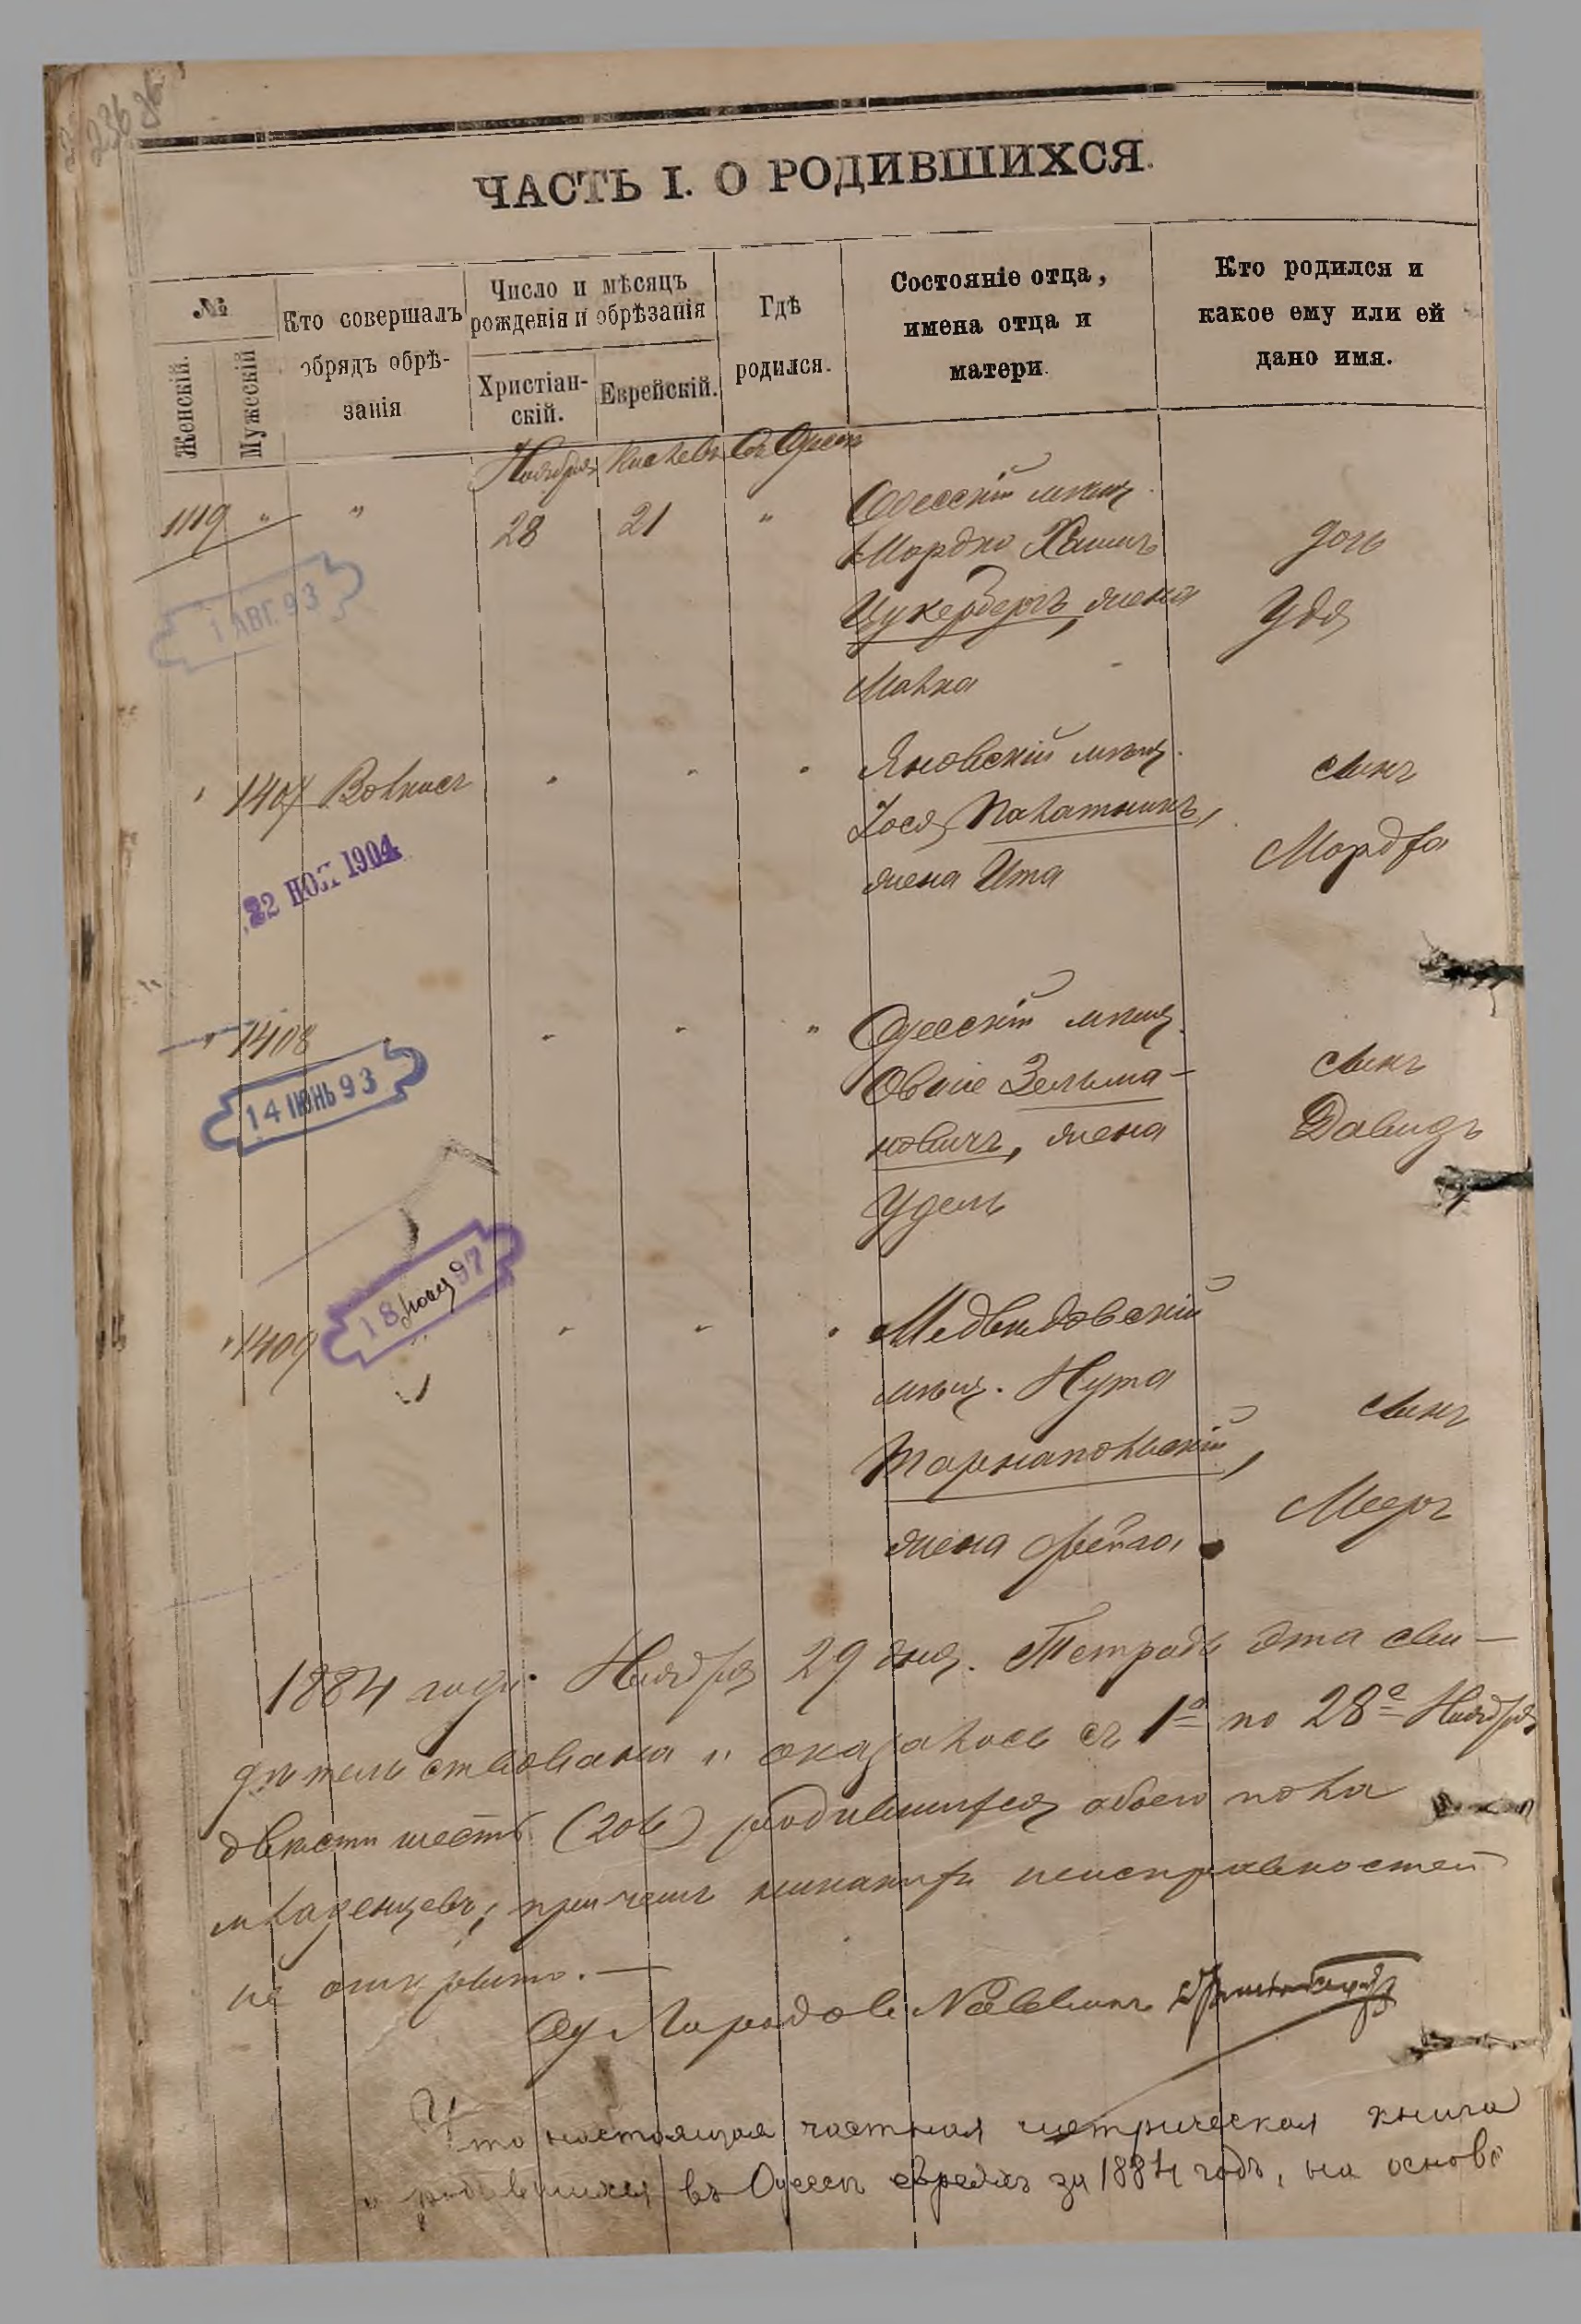 236
ЧАСТЬ I. О РОДИВШИХСЯ.
№
Женскій.
Мужескій
Кто совершалъ
обрядъ обрѣ-
занія
Число и мѣсяцъ
рожденія и обрѣзанія
Христіан-
скій.
Еврейскій.
Гдѣ
родился.
Состояніе отца,
имена отца и
матери.
Кто родился и
какое ему или ей
дано имя.
Ноября Кислевъ Въ Одессѣ
1119 " " 28 21 " Одесскій мѣщ.
Мордко Хаимъ дочь
Цукербергъ, жена Удя
Малка
1 АВГ. 93
" 1407 Волкисъ " " " Яновскій мѣщ. сынъ
Іося Палатникъ,
жена Ита Мордха
22 НОЯ 1904
" 1408 " " " Одесскій мѣщ.
Овшіе Зельма- сынъ
новичъ, жена Давидъ
Удель
14 ІЮНЬ 93
" 1409 " " " Медвидовскій
мѣщ. Нута сынъ
Тарнапольскій,
жена Фейга. Мееръ
18 97
1884 года Ноября 29 дня. Тетрадь эта сви-
дѣтельствована и оказалось съ 1го по 28е Ноября
двѣсти шесть (206) родившихся обоего пола
младенцевъ, причемъ никакихъ неисправностей
не открыто. —
Городовой Раввинъ
Что настоящая частная метрическая книга
о родившихся въ Одессѣ евреяхъ за 1884 годъ, на основа